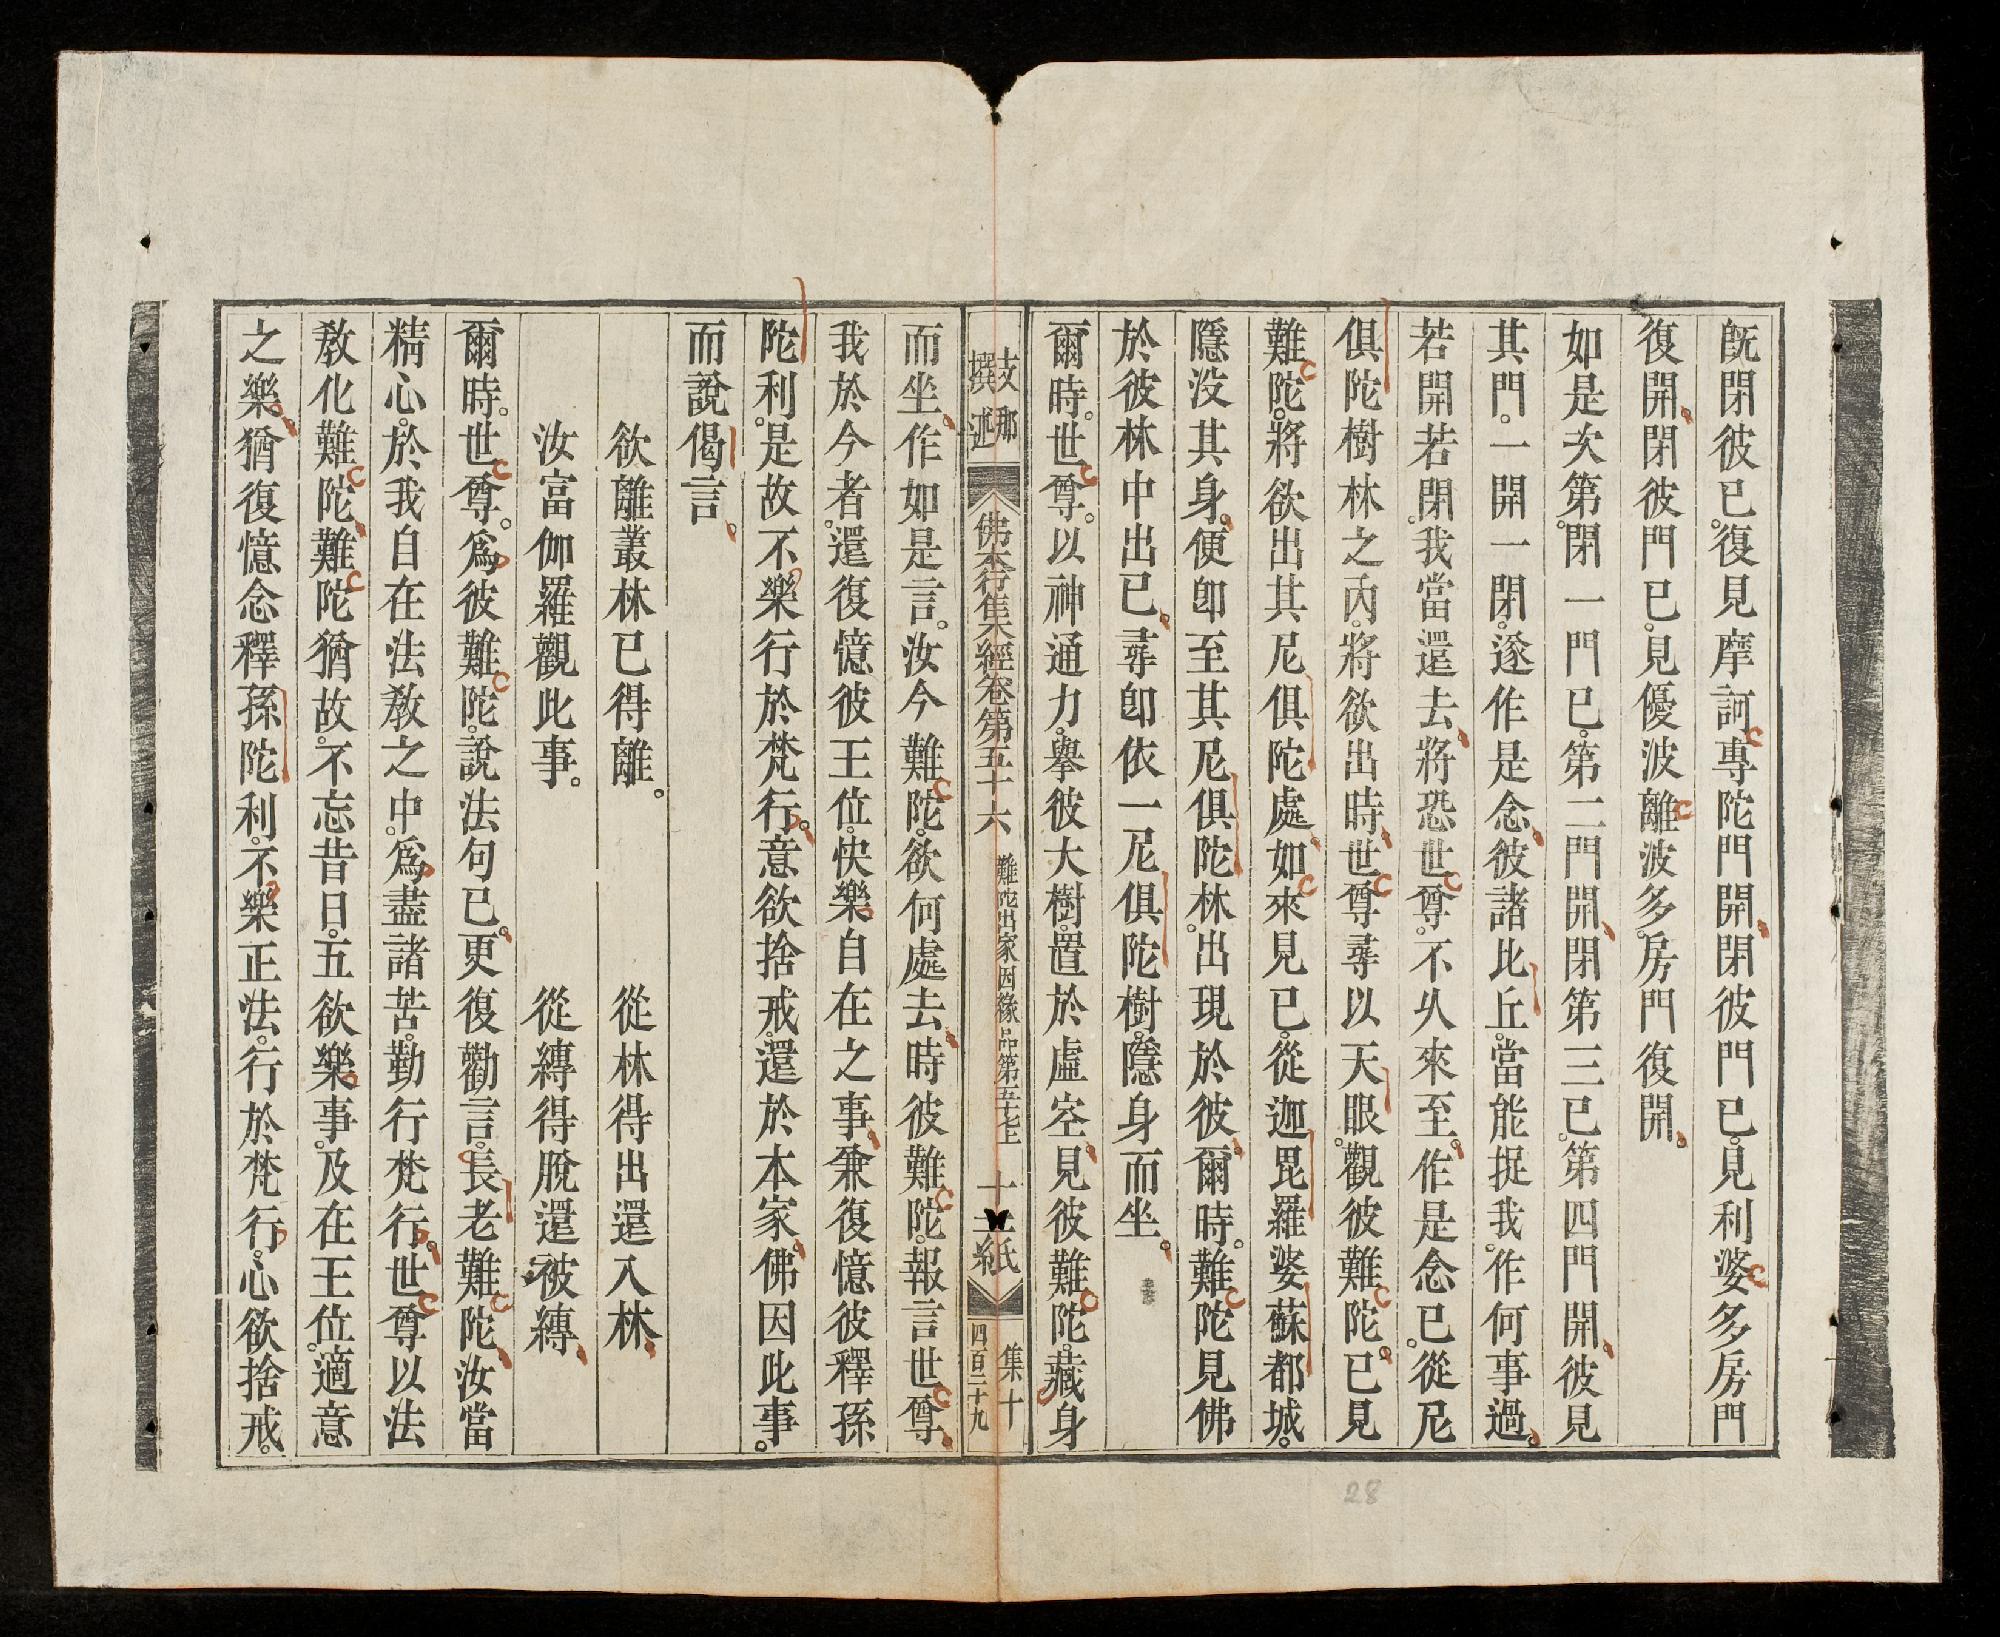 既閉彼已。復見摩訶專陀門開。閉彼門已。見利婆多房門
復開。閉彼門已。見優波離波多。房門復開。
如是次第。閉一門已。第二門開。閉第三已。第四門開。彼見
其門。一開一閉。遂作是念。彼諸比丘。當能捉我。作何事過。
若開若閉。我當還去。將恐世尊。不久來至。作是念已。從尼
俱陀樹林之內。將欲出時。世尊尋以天眼。觀彼難陀。已見
難陀。將欲出其尼俱陀處。如來見已。從迦毘羅婆蘇都城。
隱沒其身。便即至其尼俱陀林。出現於彼。爾時。難陀見佛
於彼林中出已。尋即依一尼俱陀樹。隱身而坐。
爾時。世尊。以神通力。擧彼大樹。置於虛空。見彼難陀。藏身
支那
撰述
佛本行集經卷第五十六
難陀出家因緣品第五十七上
十三紙
集十
四百三十九
而坐。作如是言。汝今難陀。欲何處去。時彼難陀。報言世尊。
我於今者。還復憶彼王位。快樂自在之事。兼復憶彼釋孫
陀利。是故不樂行於梵行。意欲捨戒。還於本家。佛因此事。
而說偈言。
欲離叢林已得離。　從林得出還入林。
汝富伽羅觀此事。　從縛得脫還被縛。
爾時。世尊。爲彼難陀。說法句已。更復勸言。長老難陀。汝當
精心。於我自在法敎之中。爲盡諸苦。勤行梵行。世尊以法
敎化難陀。難陀猶故。不忘昔日。五欲樂事。及在王位。適意
之樂。猶復憶念釋孫陀利。不樂正法。行於梵行。心欲捨戒。
28